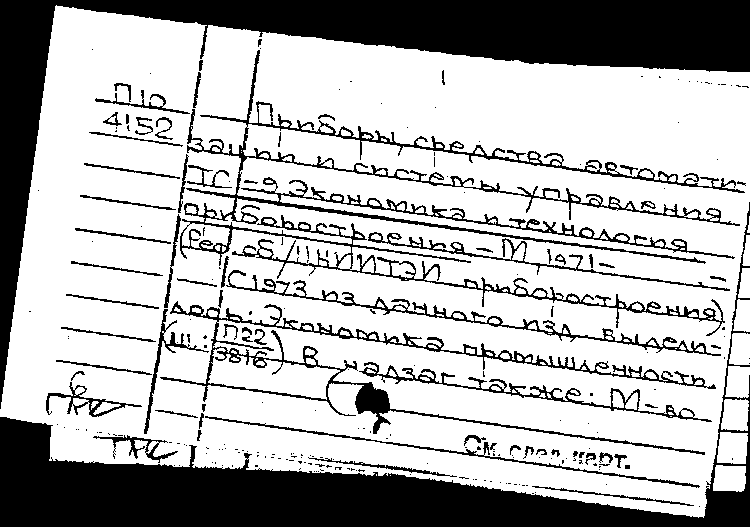 П10
4152
Приборы, средства автомати-
зации и системы управления.
ТС-9, Экономика и технология
приборостроения - М, 1971-     . -
(Реф. сб. / ЦНИИТЭИ приборостроения).
С 1973 из данного изд. выдели-
лось: Экономика промышленность.
(ш.: П22
3816) В надзаг также: М-во
6
ГПК
См. след. карт.
ГПК